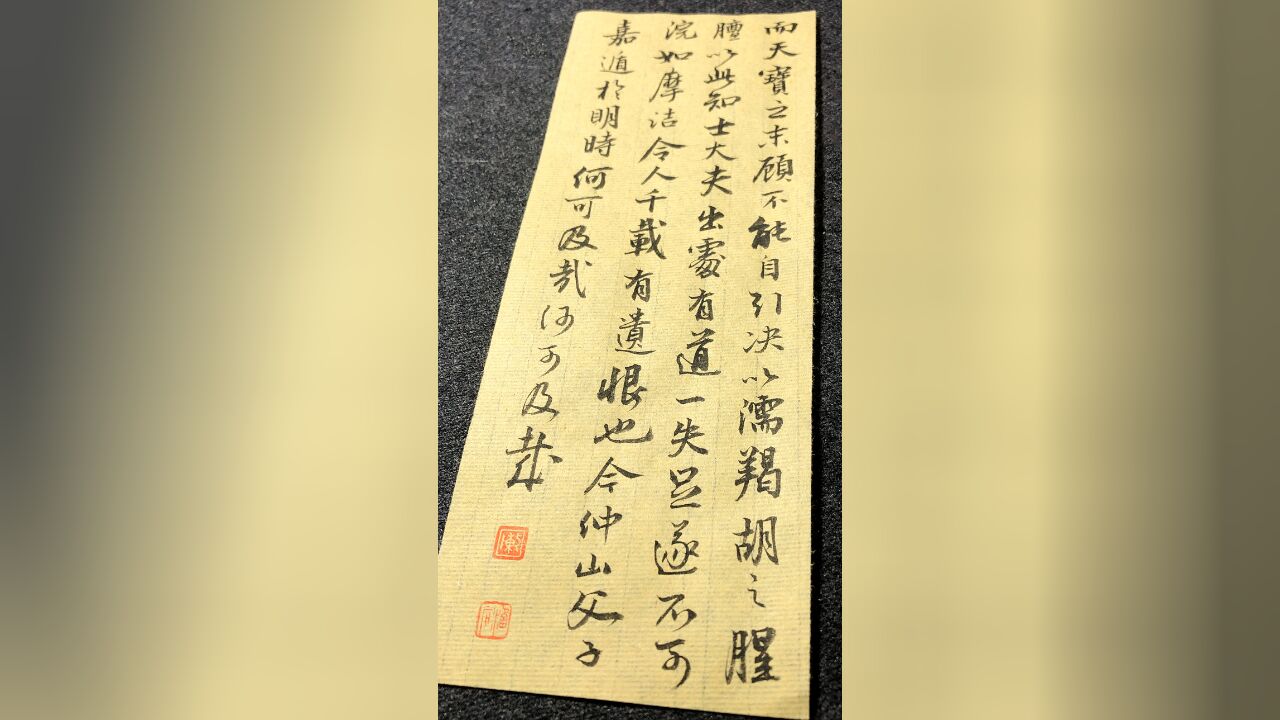 而天寶之末顧不能自引決以濡羯胡之腥
膻以此知士大夫出處有道一失足遂不可
浣如摩詰令人千載有遺恨也今仲山父子
嘉遁於明時何可及哉何可及哉